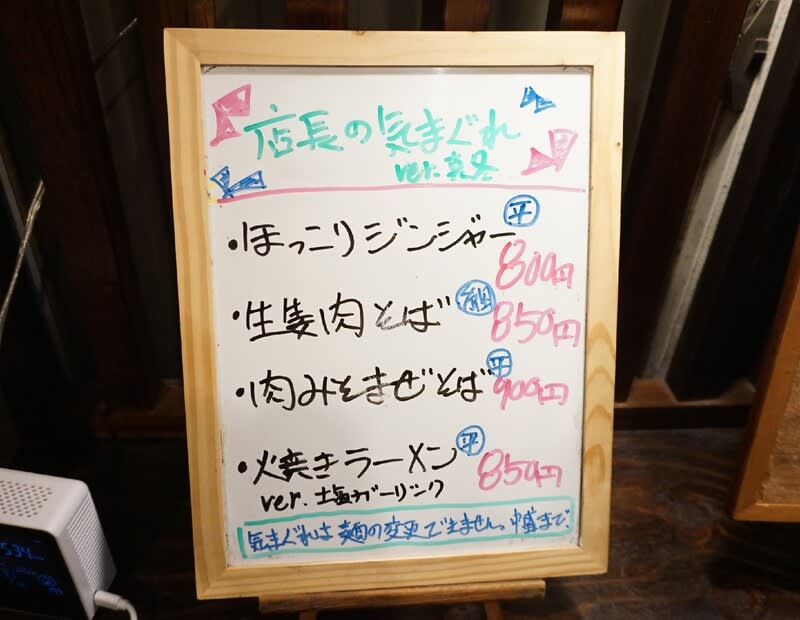 店長の気まぐれ
ver.真冬
・ほっこりジンジャー 平
800円
・生姜肉そば 細
850円
・肉みそまぜそば 平
900円
・火焼きラーメン 平
850円
ver.塩ガーリック
気まぐれは麺の変更できません。中盛まで。
534